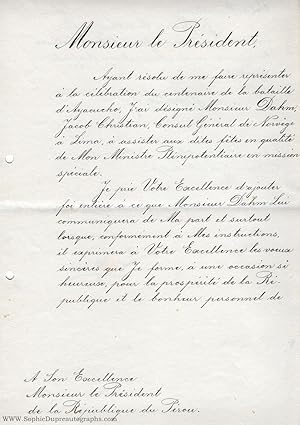 Monsieur le Président,
Ayant résolu de me faire représenter
à la célébration du centenaire de la bataille
d'Ayacucho, J'ai désigné Monsieur Dahm,
Jacob Christian, Consul Général de Norvège
à Lima, à assister aux dites fêtes en qualité
de Mon Ministre Plénipotentiaire en mission
spéciale.
Je prie Votre Excellence d'ajouter
foi entière à ce que Monsieur Dahm lui
communiquera de Ma part et surtout
lorsque, conformément à Mes instructions,
il exprimera à Votre Excellence les voeux
sincères que Je forme, à une occasion si
heureuse, pour la prospérité de la Ré-
publique et le bonheur personnel de
A Son Excellence
Monsieur le Président
de la République du Pérou.
www.SophieDupreautographs.com